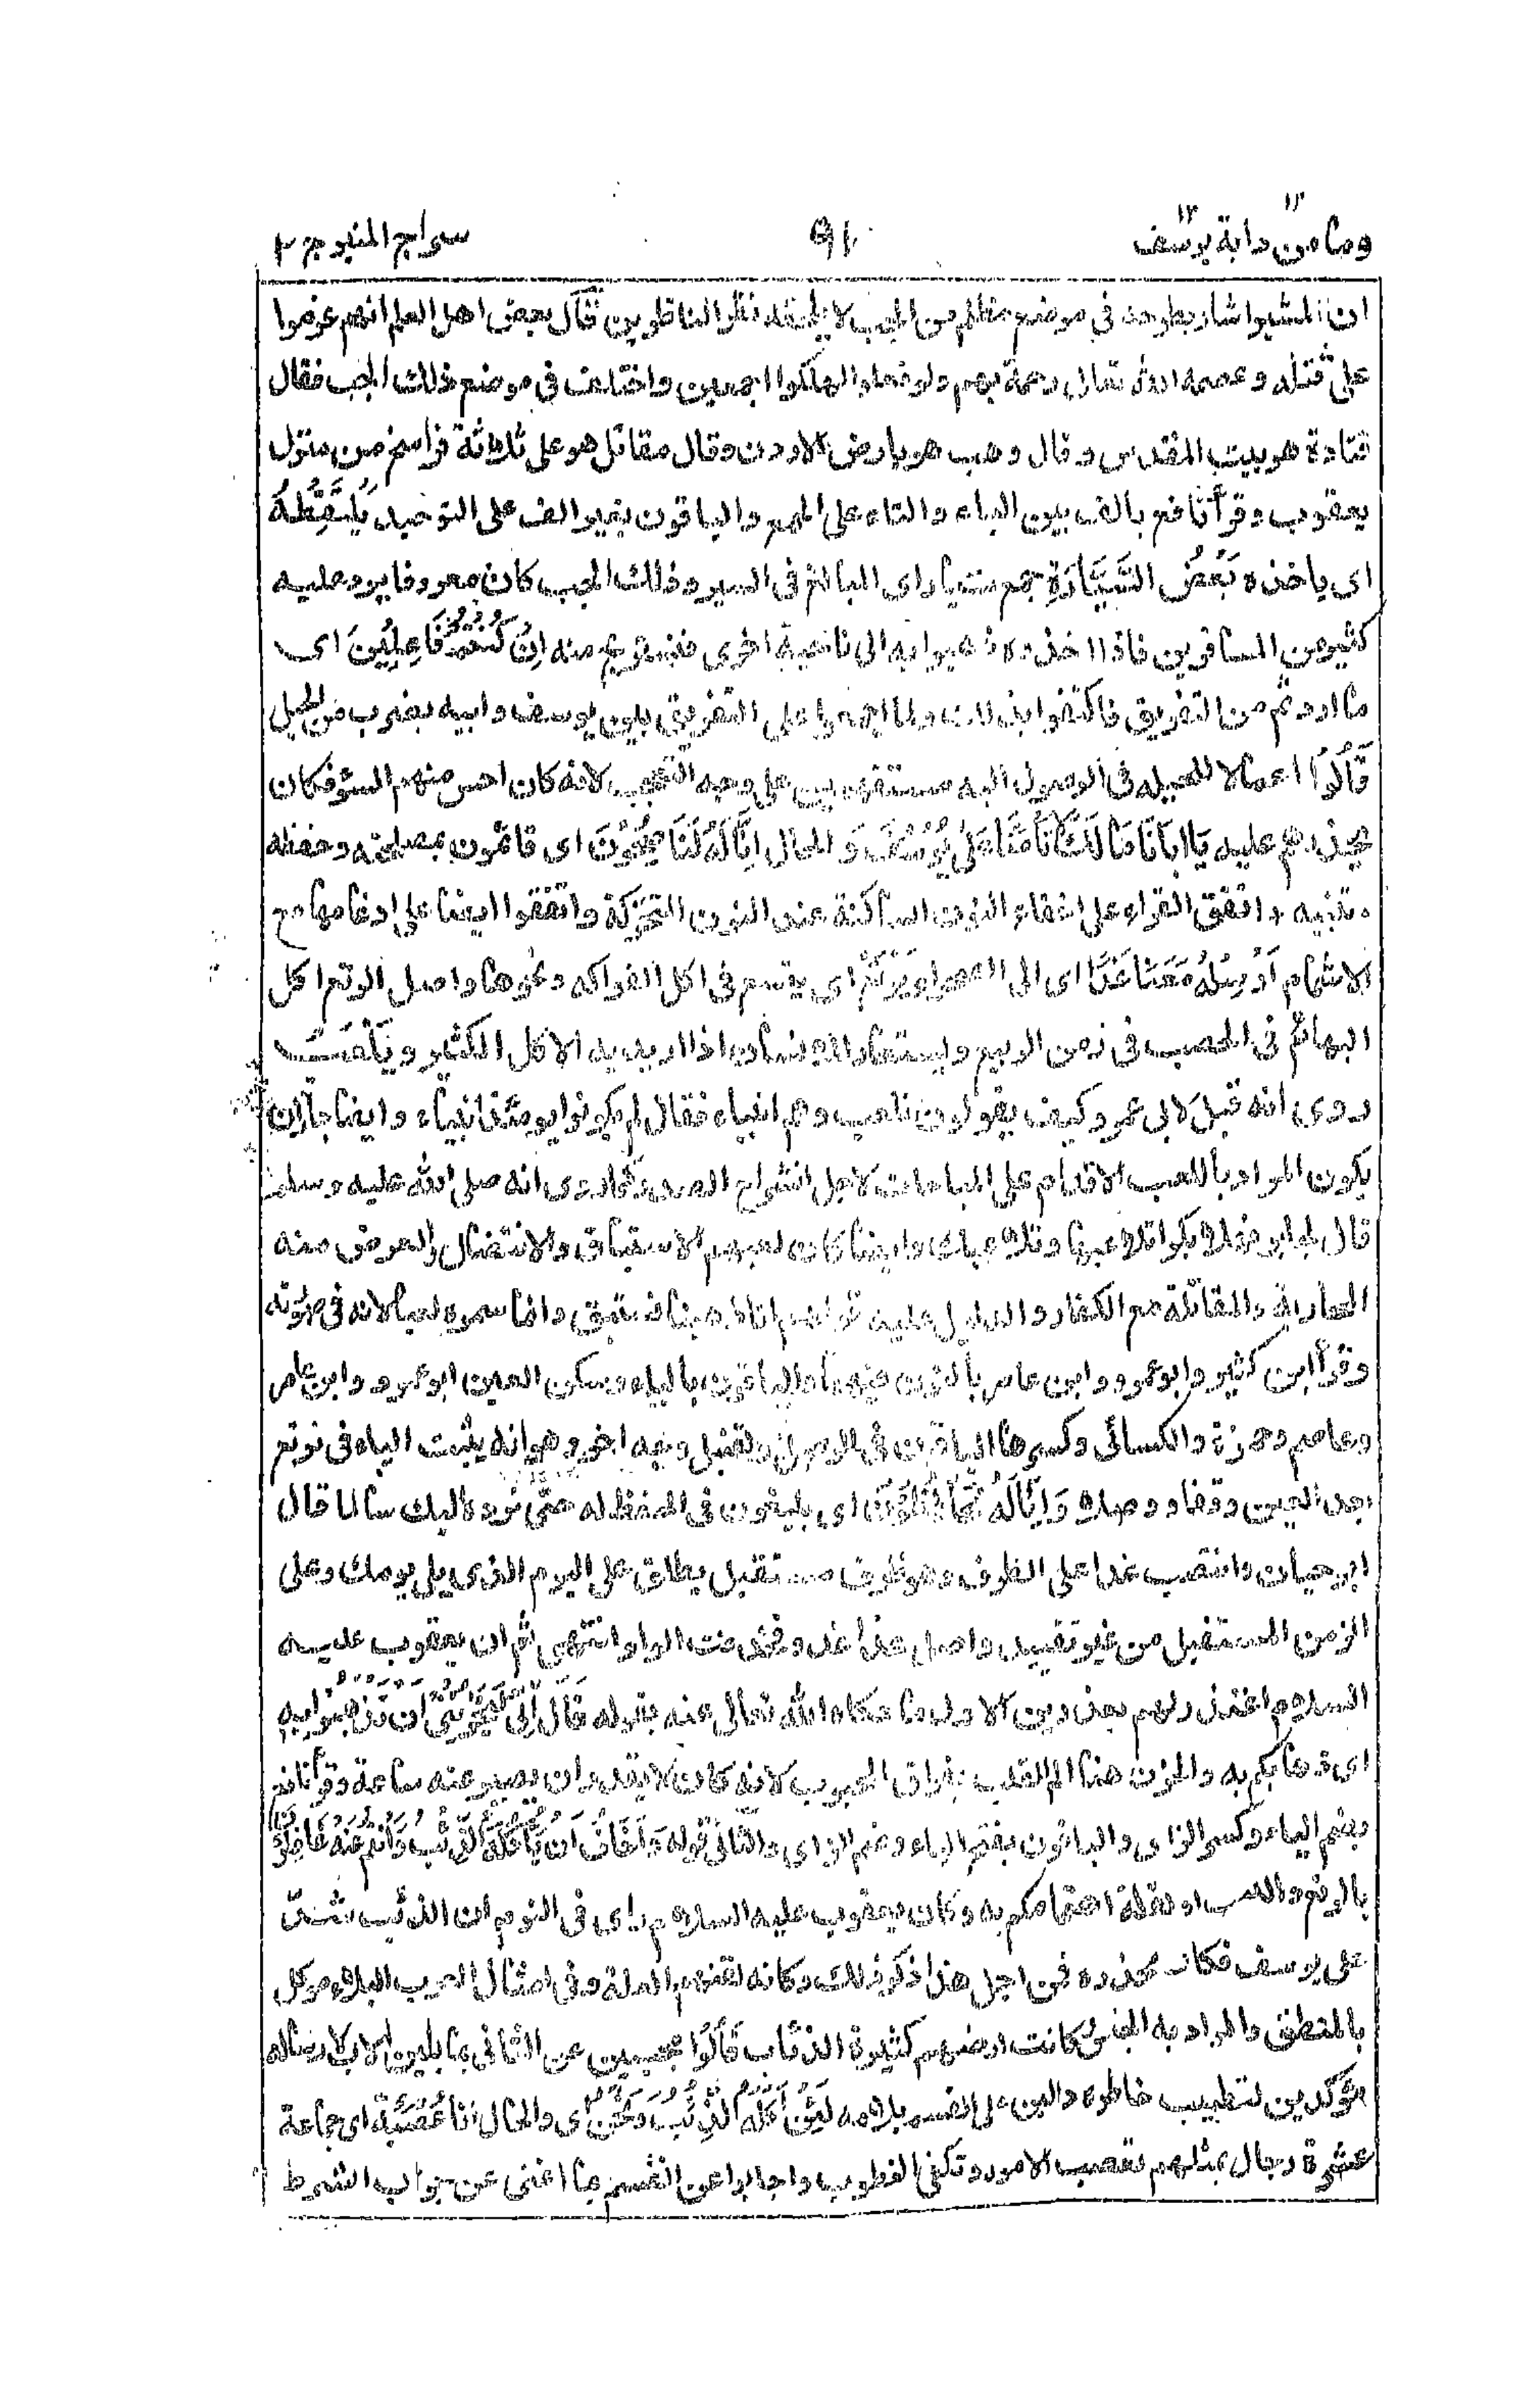 وما من دابة ١٢ يوسف ١٢
٩١
سراج المنير ج ٢
ان المشير اشار بطرحه في موضع مظلم من الجب لا يلحقه نظر الناظرين قال بعض اهل العلم انهم عزموا
على قتله وعصمه الله تعالى رحمة بهم ولو فعلوا لهلكوا اجمعين واختلف في موضع ذلك الجب فقال
قتادة هو بيت المقدس وقال وهب هو بارض الاردن وقال مقاتل هو على ثلاثة فراسخ من منزل
يعقوب وقرأ نافع بالف بين الباء والتاء على الجمع والباقون بغير الف على التوحيد يَلْتَقِطْهُ
اى ياخذه بَعْضُ السَّيَّارَةِ جمع سيار اى المبالغ في السير وذلك الجب كان معروفا يرد عليه
كثير من المسافرين فاذا اخذوه ذهبوا به الى ناحية اخرى فنستريح منه اِنْ كُنْتُمْ فَاعِلِيْنَ اى
ما اردتم من التفريق فاكتفوا بذلك ولما اجمعوا على التفريق بين يوسف وابيه بضرب من الحيل
قَالُوْا اعمالا للحيلة في الوصول اليه مستفهمين على وجه التعجب لانه كان احس منهم السوء فكان
يحذرهم عليه يَا اَبَانَا مَا لَكَ لَا تَأْمَنَّا عَلٰى يُوْسُفَ وَ الحال اِنَّا لَهُ لَنَاصِحُوْنَ اى قائمون بمصلحته وحفظه
تنبيه واتفق القراء على اخفاء النون الساكنة عند النون المتحركة واتفقوا ايضا على ادغامها مع
الاشمام اَرْسِلْهُ مَعَنَا غَدًا اى الى الصحراء يَرْتَعْ اى يتسع في اكل الفواكه ونحوها واصل الرتع اكل
البهائم في الخصب في زمن الربيع ويستعار للانسان اذا اريد به الاكل الكثير وَ يَلْعَبْ
روى انه قيل لابى عمرو كيف يقولون نلعب وهم انبياء فقال لم يكونوا يومئذ انبياء وايضا جاز ان
يكون المراد باللعب الاقدام على المباحات لاجل انشراح الصدر كما روى انه صلى الله عليه وسلم
قال لجابر فهلا بكرا تلاعبها وتلاعبك وايضا كان لعبهم الاستباق والانتضال والغرض منه
المحاربة والمقاتلة مع الكفار والدليل عليه قولهم انا ذهبنا نستبق وانما سموه لعبا لانه في صورته
وقرأ ابن كثير وابو عمرو وابن عامر بالنون فيهما والباقون بالياء وسكن العين ابو عمرو وابن عامر
وعاصم وحمزة والكسائى وكسرها الباقون في الوصل ولقنبل وجه اخر وهو انه يثبت الياء في نرتع
بعد العين وقفا ووصلا وَاِنَّا لَهُ لَحَافِظُوْنَ اى بليغون في الحفظ له حتى نرده اليك سالما قال
ابو حيان وانتصب غدا على الظرف وهو ظرف مستقبل يطلق على اليوم الذى يلى يومك وعلى
الزمن المستقبل من غير تقييد واصل غدا غدو فحذفت الواو انتهى ثم ان يعقوب عليه
السلام اعتذر لهم بعذرين الاول ما حكاه الله تعالى عنه بقوله قَالَ اِنِّى لَيَحْزُنُنِى اَنْ تَذْهَبُوْا بِهِ
اى ذهابكم به والحزن هنا الم القلب بفراق المحبوب لانه كان لا يقدر ان يصبر عنه ساعة وقرأ نافع
بضم الياء وكسر الزاى والباقون بفتح الياء وضم الزاى والثانى قوله وَ اَخَافُ اَنْ يَّأْكُلَهُ الذِّئْبُ وَاَنْتُمْ عَنْهُ غَافِلُوْنَ
بالرتع واللعب او لقلة اهتمامكم به وكان يعقوب عليه السلام راى في النوم ان الذئب شد
على يوسف فكان يحذره فمن اجل هذا ذكر ذلك وكانه لقنهم العلة وفي امثال العرب البلاء موكل
بالمنطق والمراد به الجنس وكانت ارضهم كثيرة الذئاب قَالُوْا مجيبين عن الثانى بما يلين الاب لارساله
مؤكدين لتطييب خاطره دالين على القسم بلامه لَئِنْ اَكَلَهُ الذِّئْبُ وَ نَحْنُ اى والحال انا عُصْبَةٌ اى جماعة
عشرة رجال بمثلهم تعصب الامور وتكفى الخطوب واجابوا عن القسم بما اغنى عن جواب الشرط